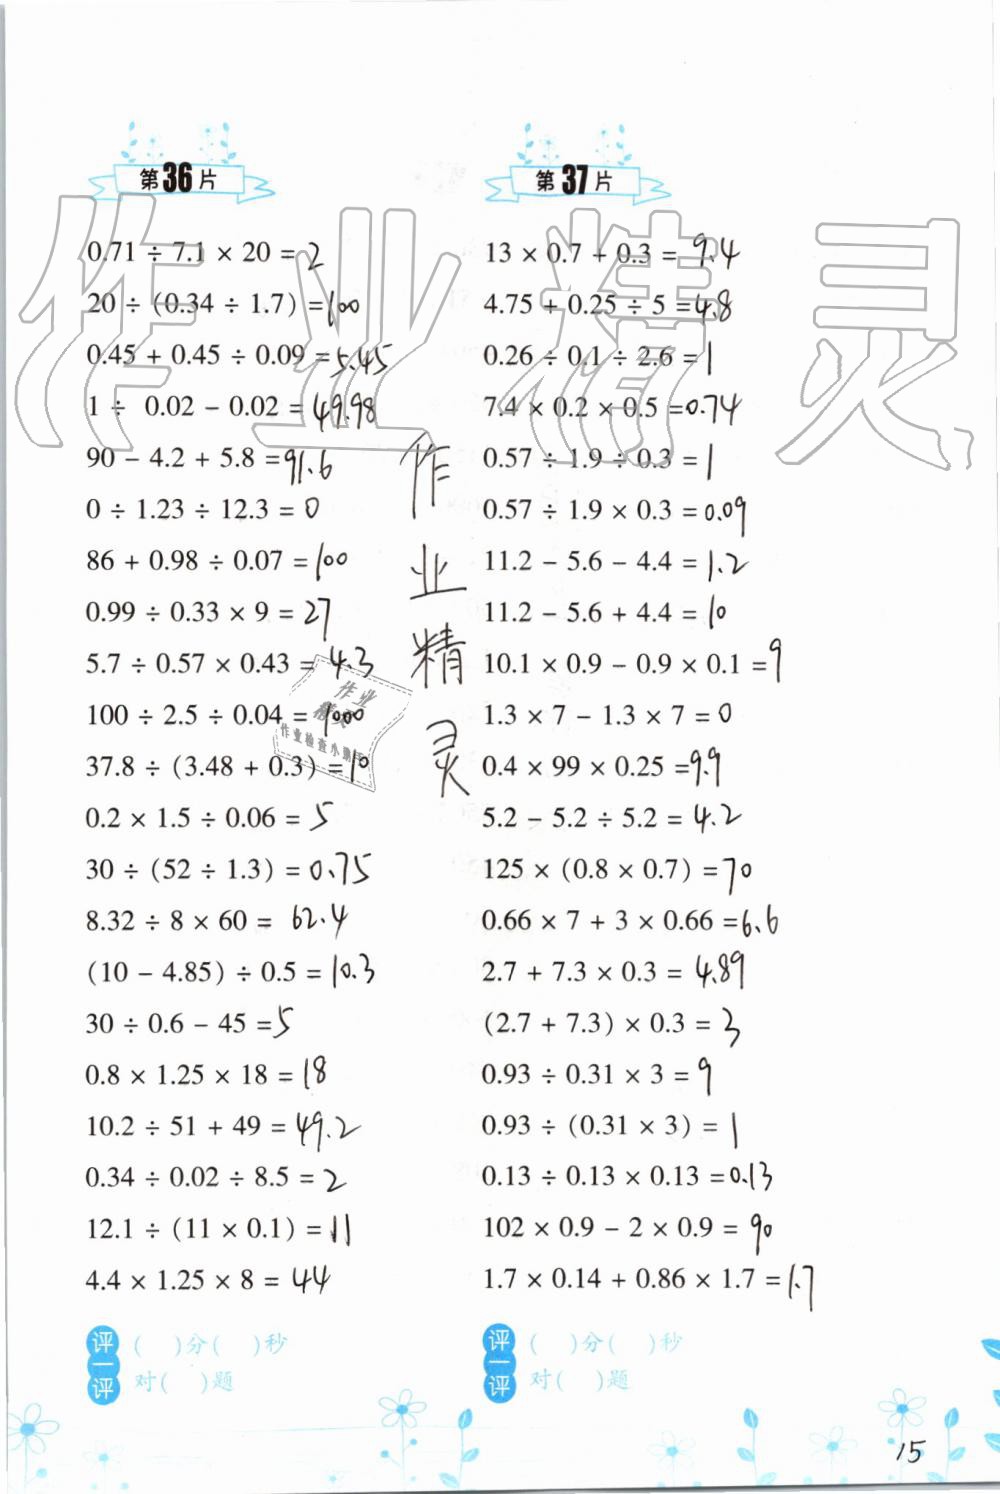 第36片
0.71 ÷ 7.1 × 20 = 2
20 ÷ (0.34 ÷ 1.7) = 100
0.45 + 0.45 ÷ 0.09 = 5.45
1 ÷ 0.02 - 0.02 = 49.98
90 - 4.2 + 5.8 = 91.6
0 ÷ 1.23 ÷ 12.3 = 0
86 + 0.98 ÷ 0.07 = 100
0.99 ÷ 0.33 × 9 = 27
5.7 ÷ 0.57 × 0.43 = 4.3
100 ÷ 2.5 ÷ 0.04 = 1000
37.8 ÷ (3.48 + 0.3) = 10
0.2 × 1.5 ÷ 0.06 = 5
30 ÷ (52 ÷ 1.3) = 0.75
8.32 ÷ 8 × 60 = 62.4
(10 - 4.85) ÷ 0.5 = 10.3
30 ÷ 0.6 - 45 = 5
0.8 × 1.25 × 18 = 18
10.2 ÷ 51 + 49 = 49.2
0.34 ÷ 0.02 ÷ 8.5 = 2
12.1 ÷ (11 × 0.1) = 11
4.4 × 1.25 × 8 = 44
评一评
( )分( )秒
对( )题
第37片
13 × 0.7 + 0.3 = 9.4
4.75 + 0.25 ÷ 5 = 4.8
0.26 ÷ 0.1 ÷ 2.6 = 1
7.4 × 0.2 × 0.5 = 0.74
0.57 ÷ 1.9 ÷ 0.3 = 1
0.57 ÷ 1.9 × 0.3 = 0.09
11.2 - 5.6 - 4.4 = 1.2
11.2 - 5.6 + 4.4 = 10
10.1 × 0.9 - 0.9 × 0.1 = 9
1.3 × 7 - 1.3 × 7 = 0
0.4 × 99 × 0.25 = 9.9
5.2 - 5.2 ÷ 5.2 = 4.2
125 × (0.8 × 0.7) = 70
0.66 × 7 + 3 × 0.66 = 6.6
2.7 + 7.3 × 0.3 = 4.89
(2.7 + 7.3) × 0.3 = 3
0.93 ÷ 0.31 × 3 = 9
0.93 ÷ (0.31 × 3) = 1
0.13 ÷ 0.13 × 0.13 = 0.13
102 × 0.9 - 2 × 0.9 = 90
1.7 × 0.14 + 0.86 × 1.7 = 1.7
评一评
( )分( )秒
对( )题
作业精灵
作业精灵
作业
精灵
15